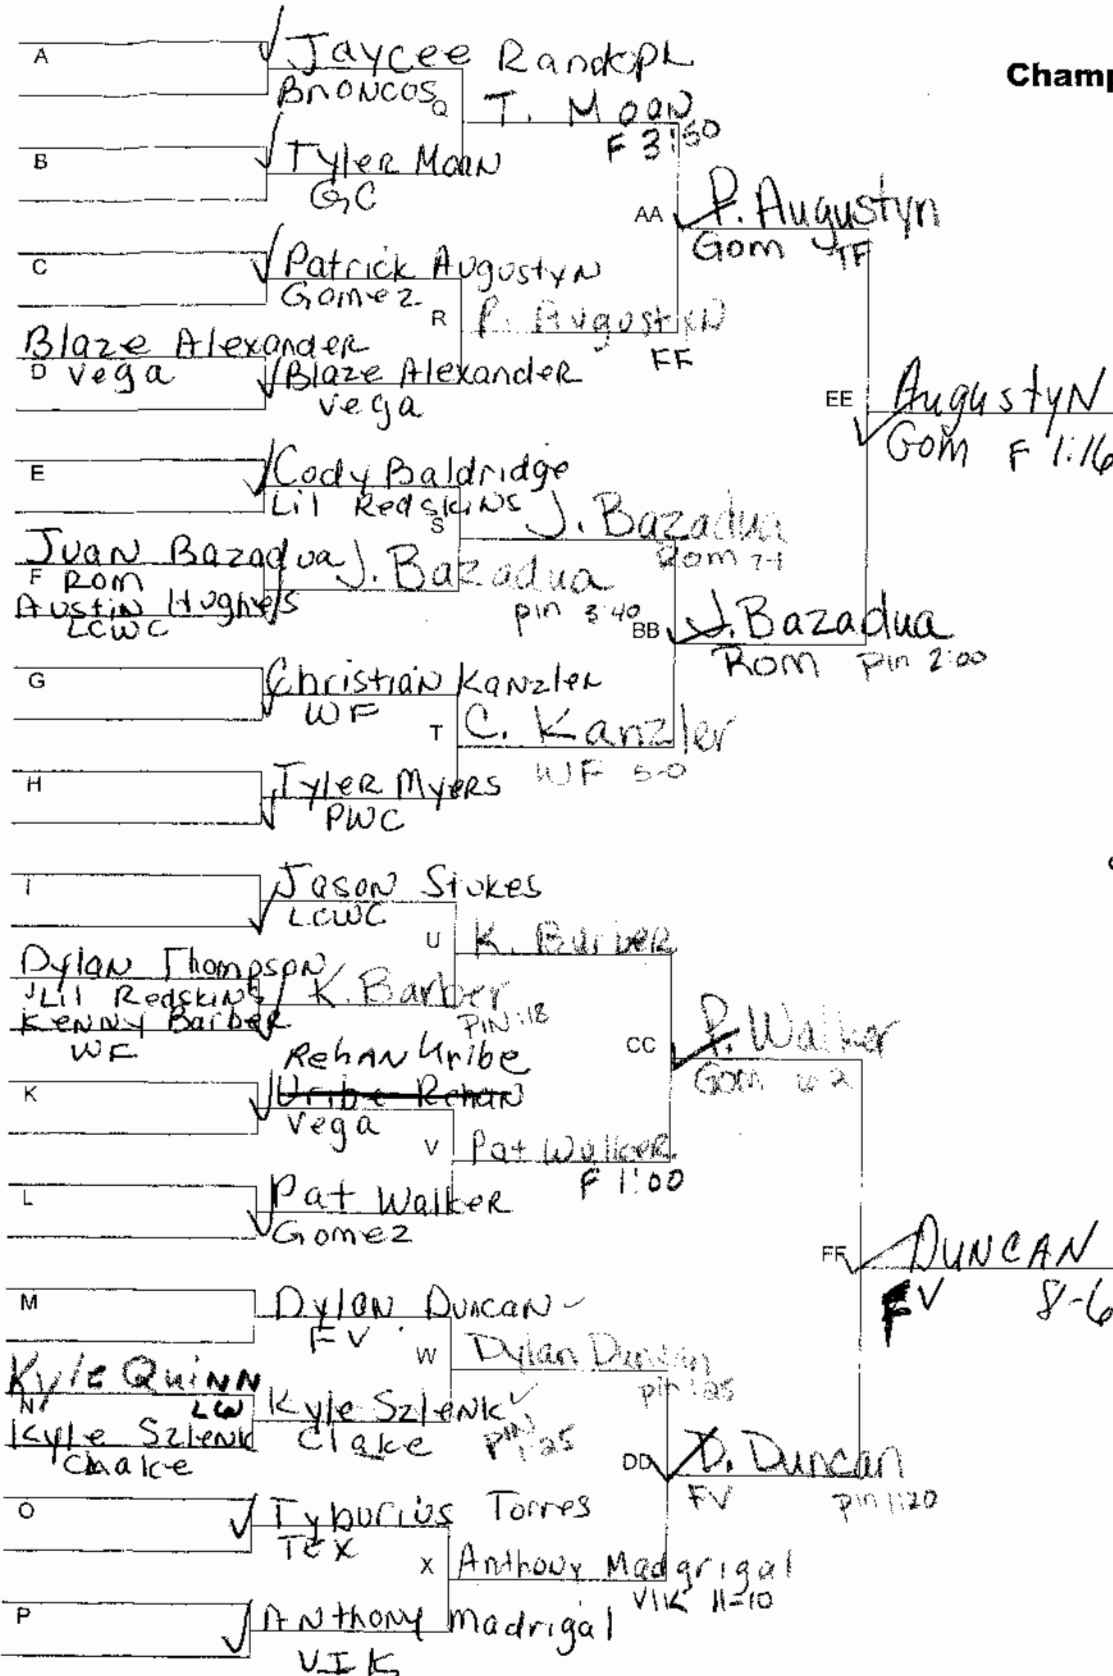 A
Jaycee Randoph
Broncos
Champ
Q
T. Moon
F 3:50
B
Tyler Moon
GC
AA
P. Augustyn
Gom TF
C
Patrick Augustyn
Gomez
R
P. Augustyn
FF
Blaze Alexander
D Vega
Blaze Alexander
Vega
EE
Augustyn
Gom F 1:16
E
Cody Baldridge
Lil Redskins
S
J. Bazadua
Rom 7-1
Juan Bazadua
F Rom
J. Bazadua
pin 3:40
Austin Hughes
LCWC
BB
J. Bazadua
Rom pin 2:00
G
Christian Kanzler
WF
T
C. Kanzler
WF 5-0
H
Tyler Myers
PWC
I
Jason Stokes
LCWC
U
K. Barber
Dylan Thompson
J Lil Redskins
K. Barber
PIN :18
Kenny Barber
WF
CC
P. Walker
Gom 4-2
Rehan Uribe
K
Uribe Rehan
Vega
V
Pat Walker
F 1:00
L
Pat Walker
Gomez
FF
Duncan
FV 8-6
M
Dylan Duncan
FV
W
Dylan Duncan
pin :25
Kyle Quinn
N LW
Kyle Szlenk
Clake
pin 1:25
Kyle Szlenk
Chake
DD
D. Duncan
FV pin 1:20
O
Tyburius Torres
TEX
X
Anthony Madgrigal
VIK 11-10
P
Anthony Madrigal
VIK